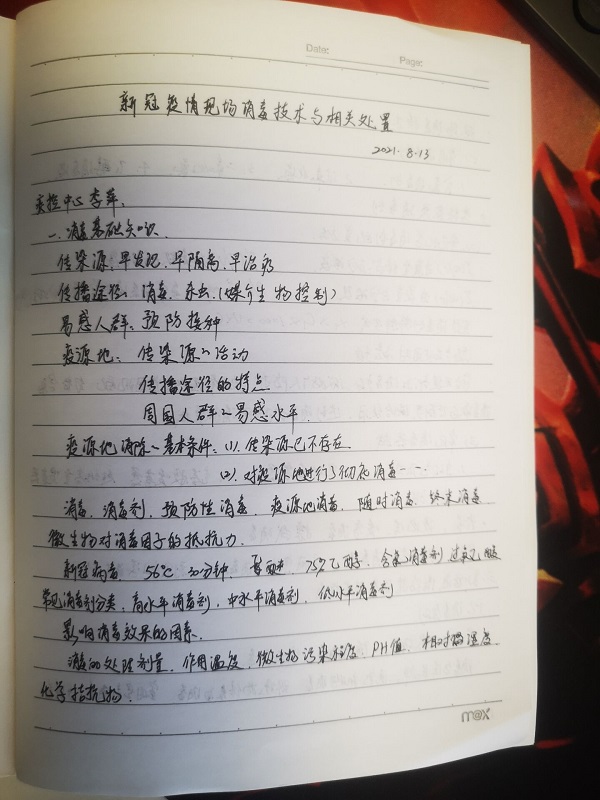 Date:
Page:
新冠疫情现场消毒技术与相关处置
2021.8.13
李萍.
一.消毒基础知识.
传染源:早发现.早隔离.早治疗
传播途径:消毒.杀虫.(媒介生物控制)
易感人群:预防接种
疫源地:传染源~活动
传播途径的特点
周围人群~易感水平.
疫源地消除~基本条件:(1).传染源已不存在.
(2).对疫源地进行了彻底消毒……
消毒.消毒剂.预防性消毒.疫源地消毒.随时消毒.终末消毒
微生物对消毒因子的抵抗力.
新冠病毒 56℃ 30分钟. 乙醚 75%乙醇.含氯消毒剂 过氧乙酸
常见消毒剂分类.高水平消毒剂.中水平消毒剂.低水平消毒剂
影响消毒效果的因素.
消毒的处理剂量.作用温度.微生物污染程度.PH值.相对湿度.
化学拮抗物.
max